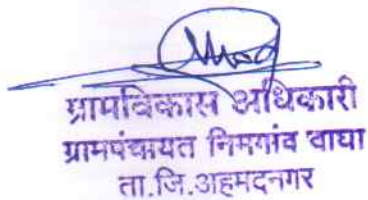 ग्रामविकास अधिकारी
ग्रामपंचायत निमगांव वाघा
ता.जि.अहमदनगर